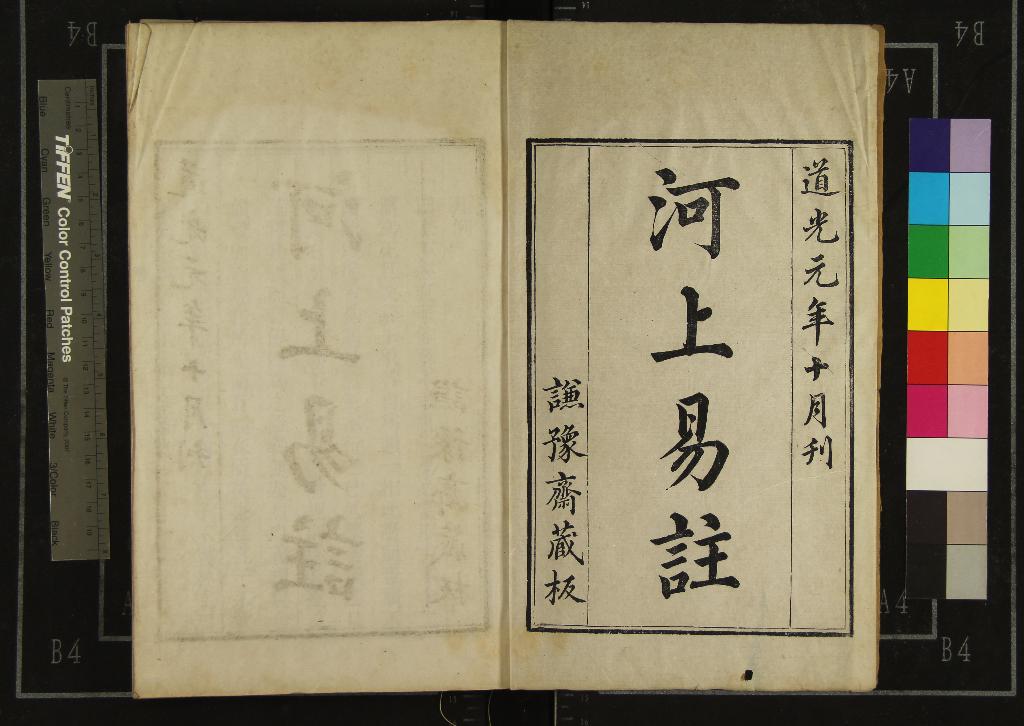 道光元年十月刊
河上易註
謙豫齋藏板
TIFFEN Color Control Patches
© The Tiffen Company, 2007
Centimetres
Inches
Blue
Cyan
Green
Yellow
Red
Magenta
White
3/Color
Black
B4
B4
A4
A4
B4
B4